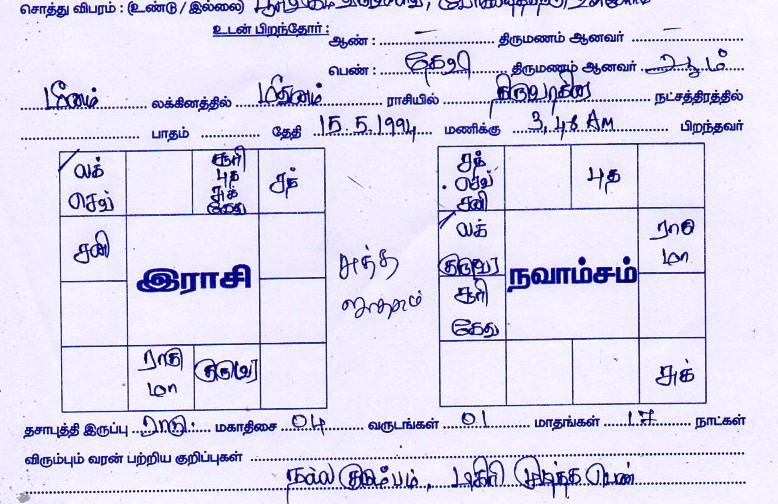 சொத்து விபரம் : (உண்டு / இல்லை)
உடன் பிறந்தோர் :
ஆண் : – திருமணம் ஆனவர் –
பெண் : திருமணம் ஆனவர்
மீனம் லக்கினத்தில் மிதுனம் ராசியில் திருவாதிரை நட்சத்திரத்தில்
பாதம் தேதி 15.5.1994 மணிக்கு 3,48 AM பிறந்தவர்
லக் செவ் சூரி புத சுக் கேது சந்
சனி
இராசி
ராகு மா குரு
சந் செவ் சனி புத
லக் குரு ராகு மா
நவாம்சம்
சூரி கேது
சுக்
தசாபுத்தி இருப்பு ராகு மகாதிசை 04 வருடங்கள் 01 மாதங்கள் 17 நாட்கள்
விரும்பும் வரன் பற்றிய குறிப்புகள்
நல்ல குடும்பம், டிகிரி முடித்த பெண்